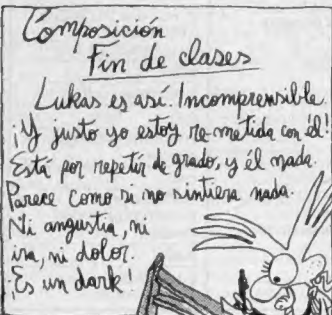 Composición
Fin de clases
Lukas es así. Incomprensible
¡Y justo yo estoy re-metida con él!
Está por repetir de grado, y él nada.
Parece como si no sintiera nada.
Ni angustia, ni
ira, ni dolor.
¡Es un dark!